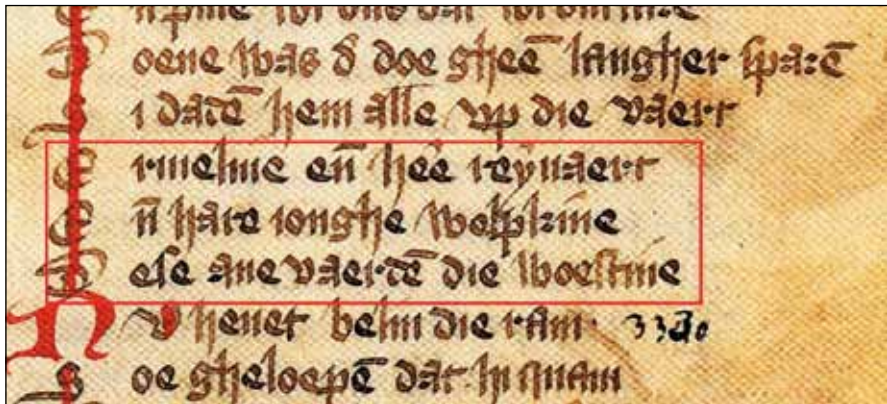 n̄ pine wi ons dat wi
Doene was d̄ doe gheē langher sparē
Si dadē hem alle vp die vaert
Ermeline en̄ hēe reynaert
En̄ hare ionghe welpkine
Dese ane vaerdē die woestine
NV heuet belin die ram 3380
Soe gheloepē dat hi quam